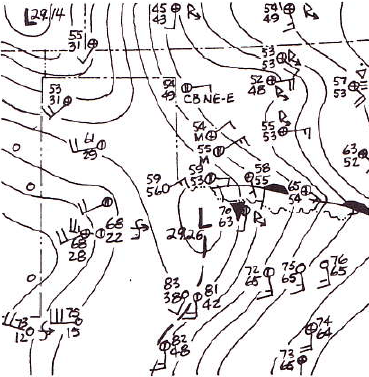 L 29.14
45
43
54
49
55
31
53
53
52
48
57
53
54
49
CB NE-E
53
31
54
M
55
53
55
M
61
29
63
52
59
56
59
53
58
55
65
54
70
63
L
29.26
68
22
68
28
83
38
81
42
72
65
75
65
76
65
78
12
75
15
82
48
74
64
73
66